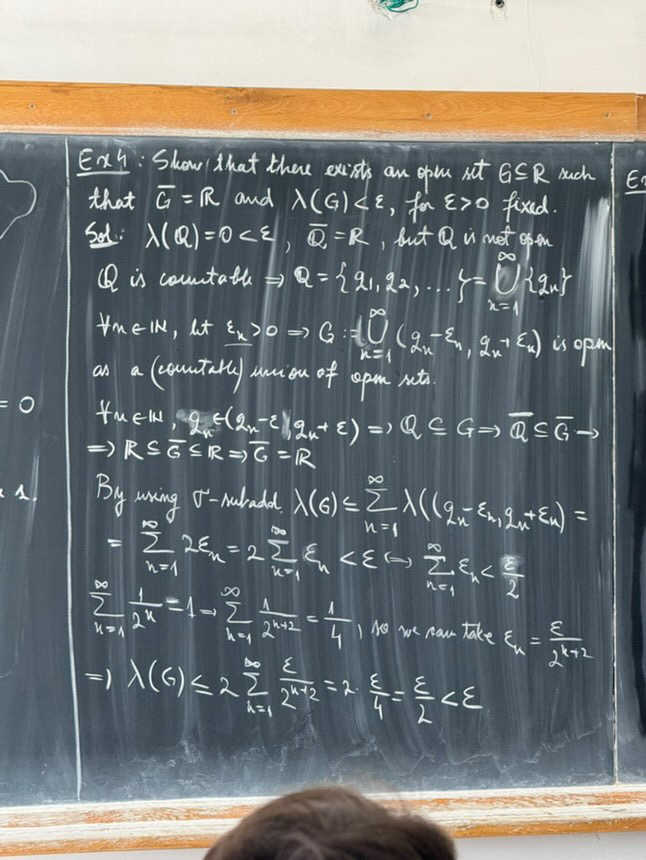 Ex 4: Show that there exists an open set G⊆ℝ such
that G̅ = ℝ and λ(G)<ε, for ε>0 fixed.
Sol: λ(ℚ)=0<ε, ℚ̅=ℝ, but ℚ is not open
ℚ is countable ⇒ ℚ={q₁,q₂, ...}= ∞⋃n=1 {qₙ}
∀n∈ℕ, let εₙ>0 ⇒ G := ∞⋃n=1 (qₙ-εₙ, qₙ+εₙ) is open
as a (countable) union of open sets.
∀n∈ℕ, qₙ∈(qₙ-ε, qₙ+ε) ⇒ ℚ⊆G ⇒ ℚ̅⊆G̅ →
⇒ ℝ⊆G̅⊆ℝ ⇒ G̅=ℝ
By using σ-subadd. λ(G) ≤ ∞∑n=1 λ((qₙ-εₙ, qₙ+εₙ) =
= ∞∑n=1 2εₙ = 2 ∞∑n=1 εₙ < ε ⇔ ∞∑n=1 εₙ < ε/2
∞∑n=1 1/2ⁿ = 1 ⇒ ∞∑n=1 1/2ⁿ⁺² = 1/4, so we can take εₙ = ε/2ⁿ⁺²
⇒ λ(G) ≤ 2 ∞∑n=1 ε/2ⁿ⁺² = 2. ε/4 = ε/2 < ε
= 0
s.